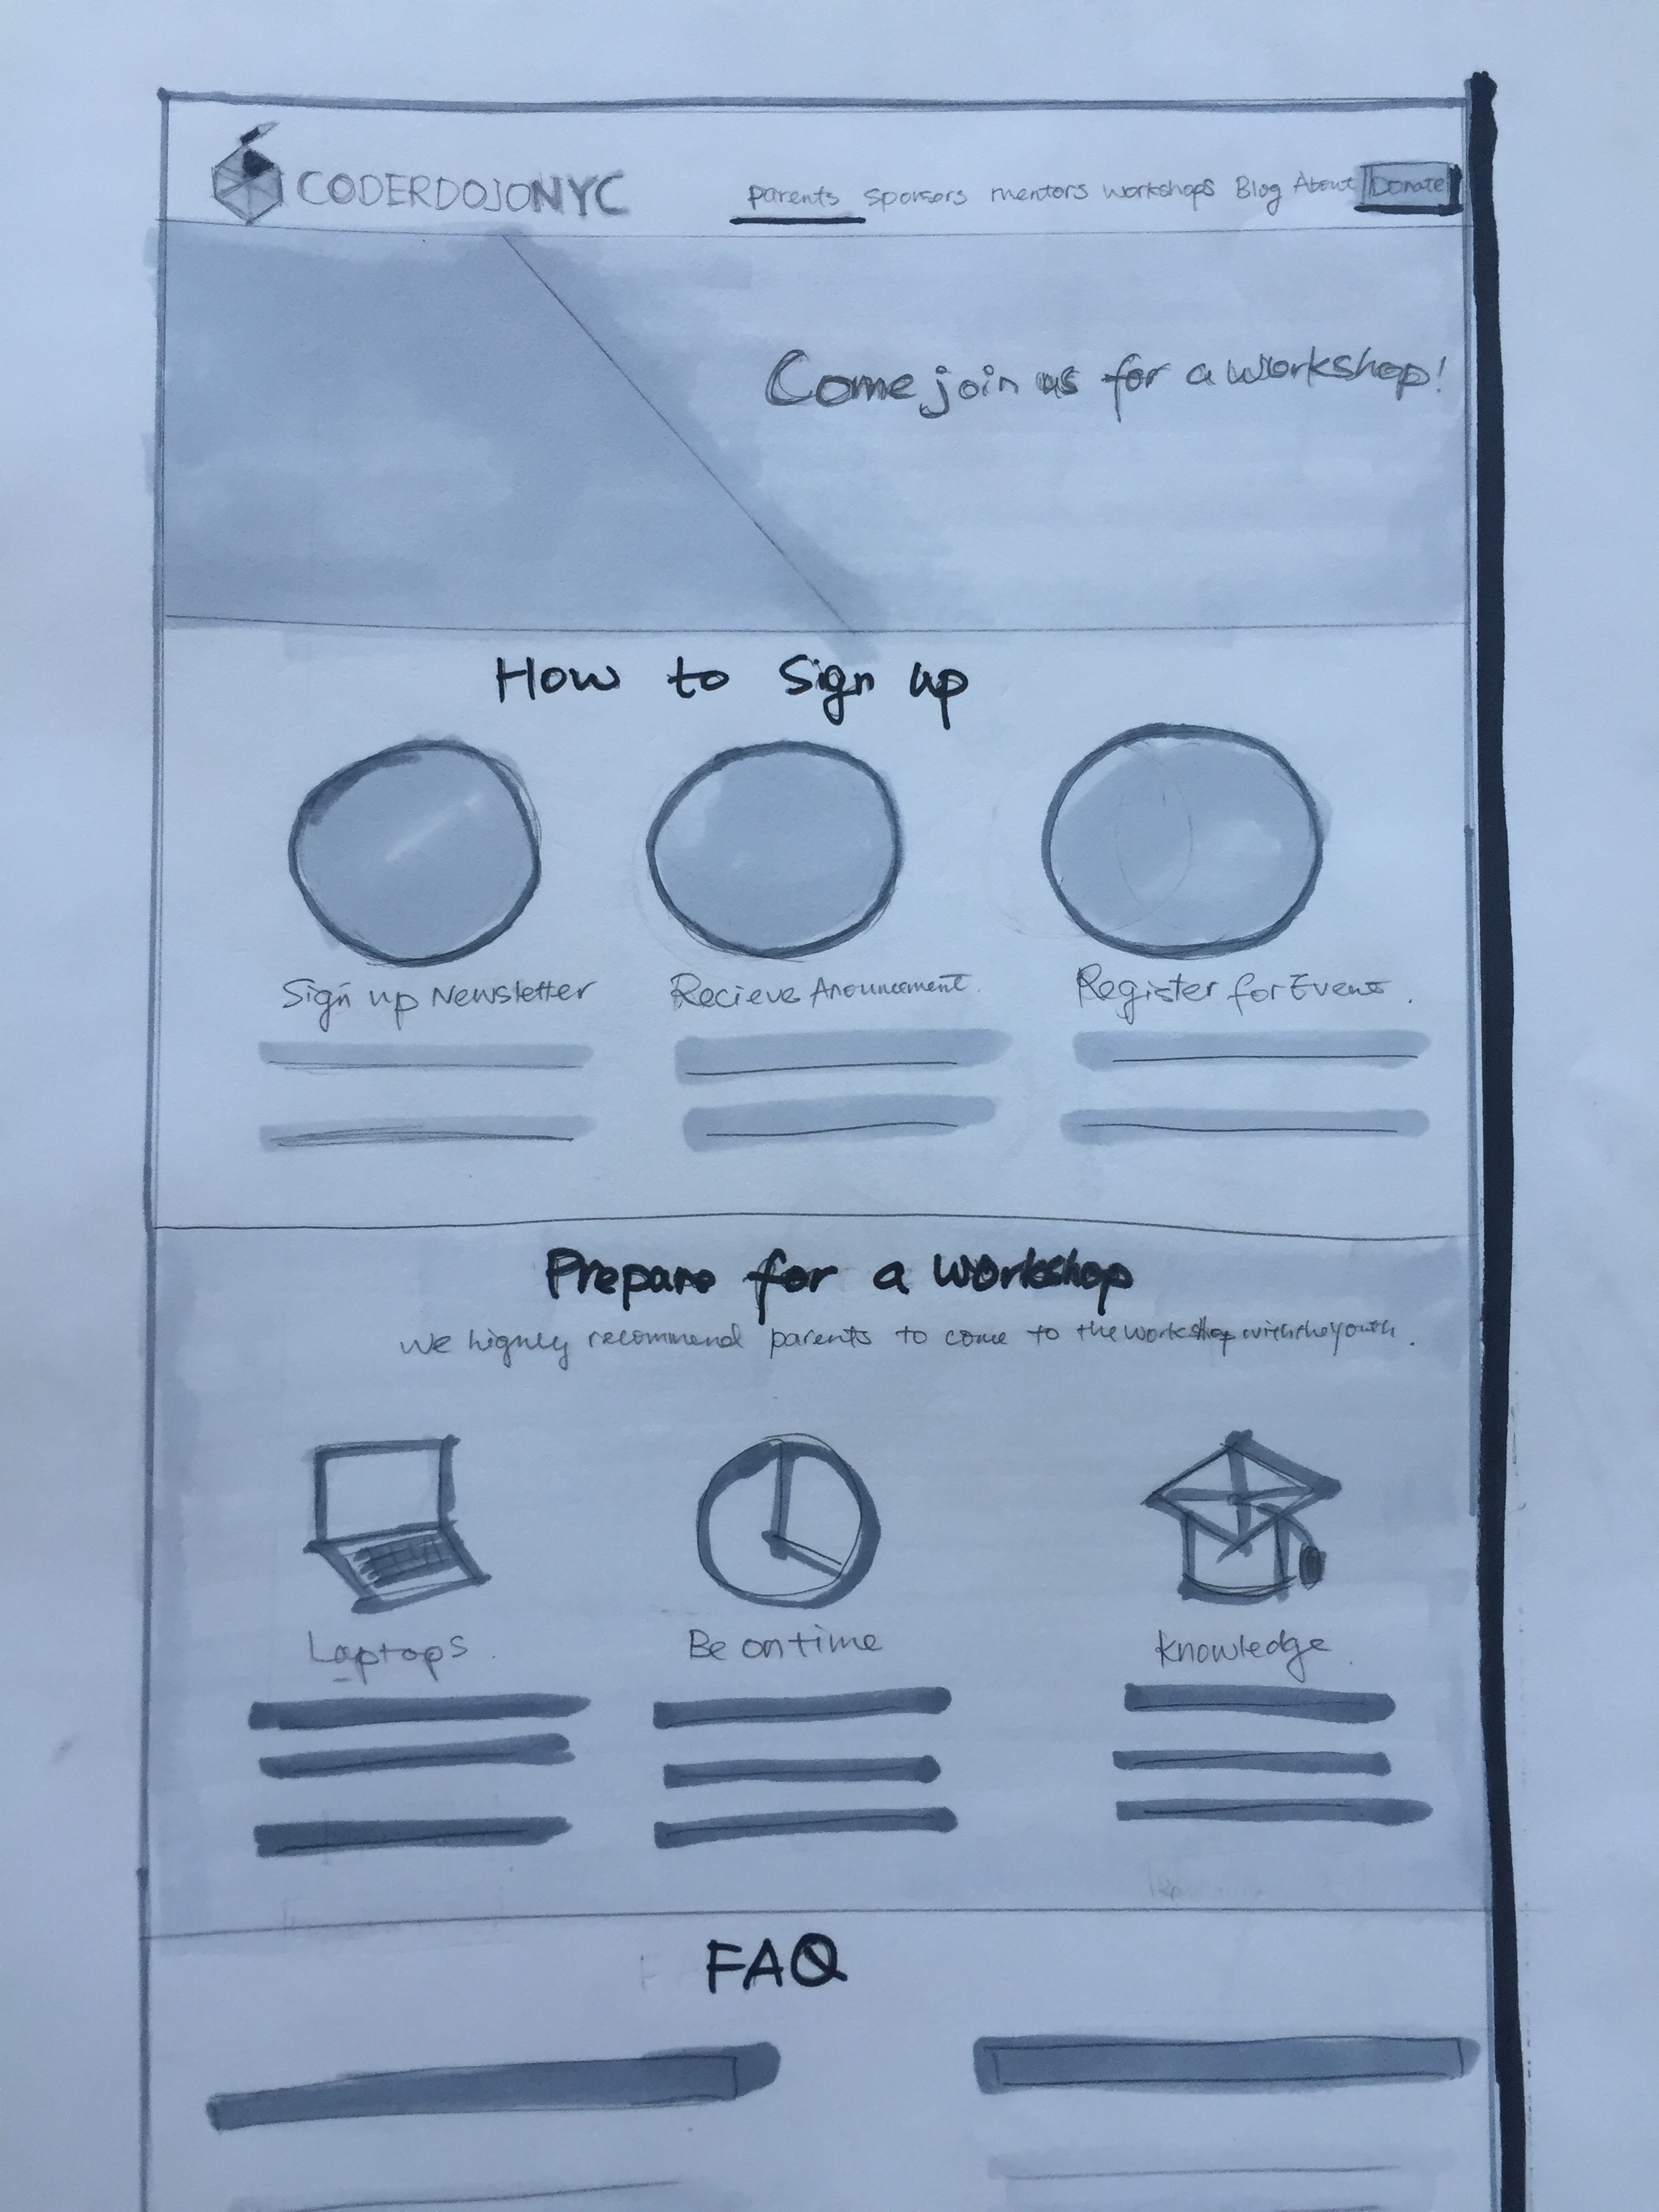 CODERDOJONYC
parents sponsors mentors workshops Blog About Donate
Come join us for a workshop!
How to Sign up
Sign up Newsletter Recieve Anouncement. Register for Event.
Prepare for a Workshop
We highly recommend parents to come to the workshop with the youth.
Laptops. Be on time Knowledge.
FAQ